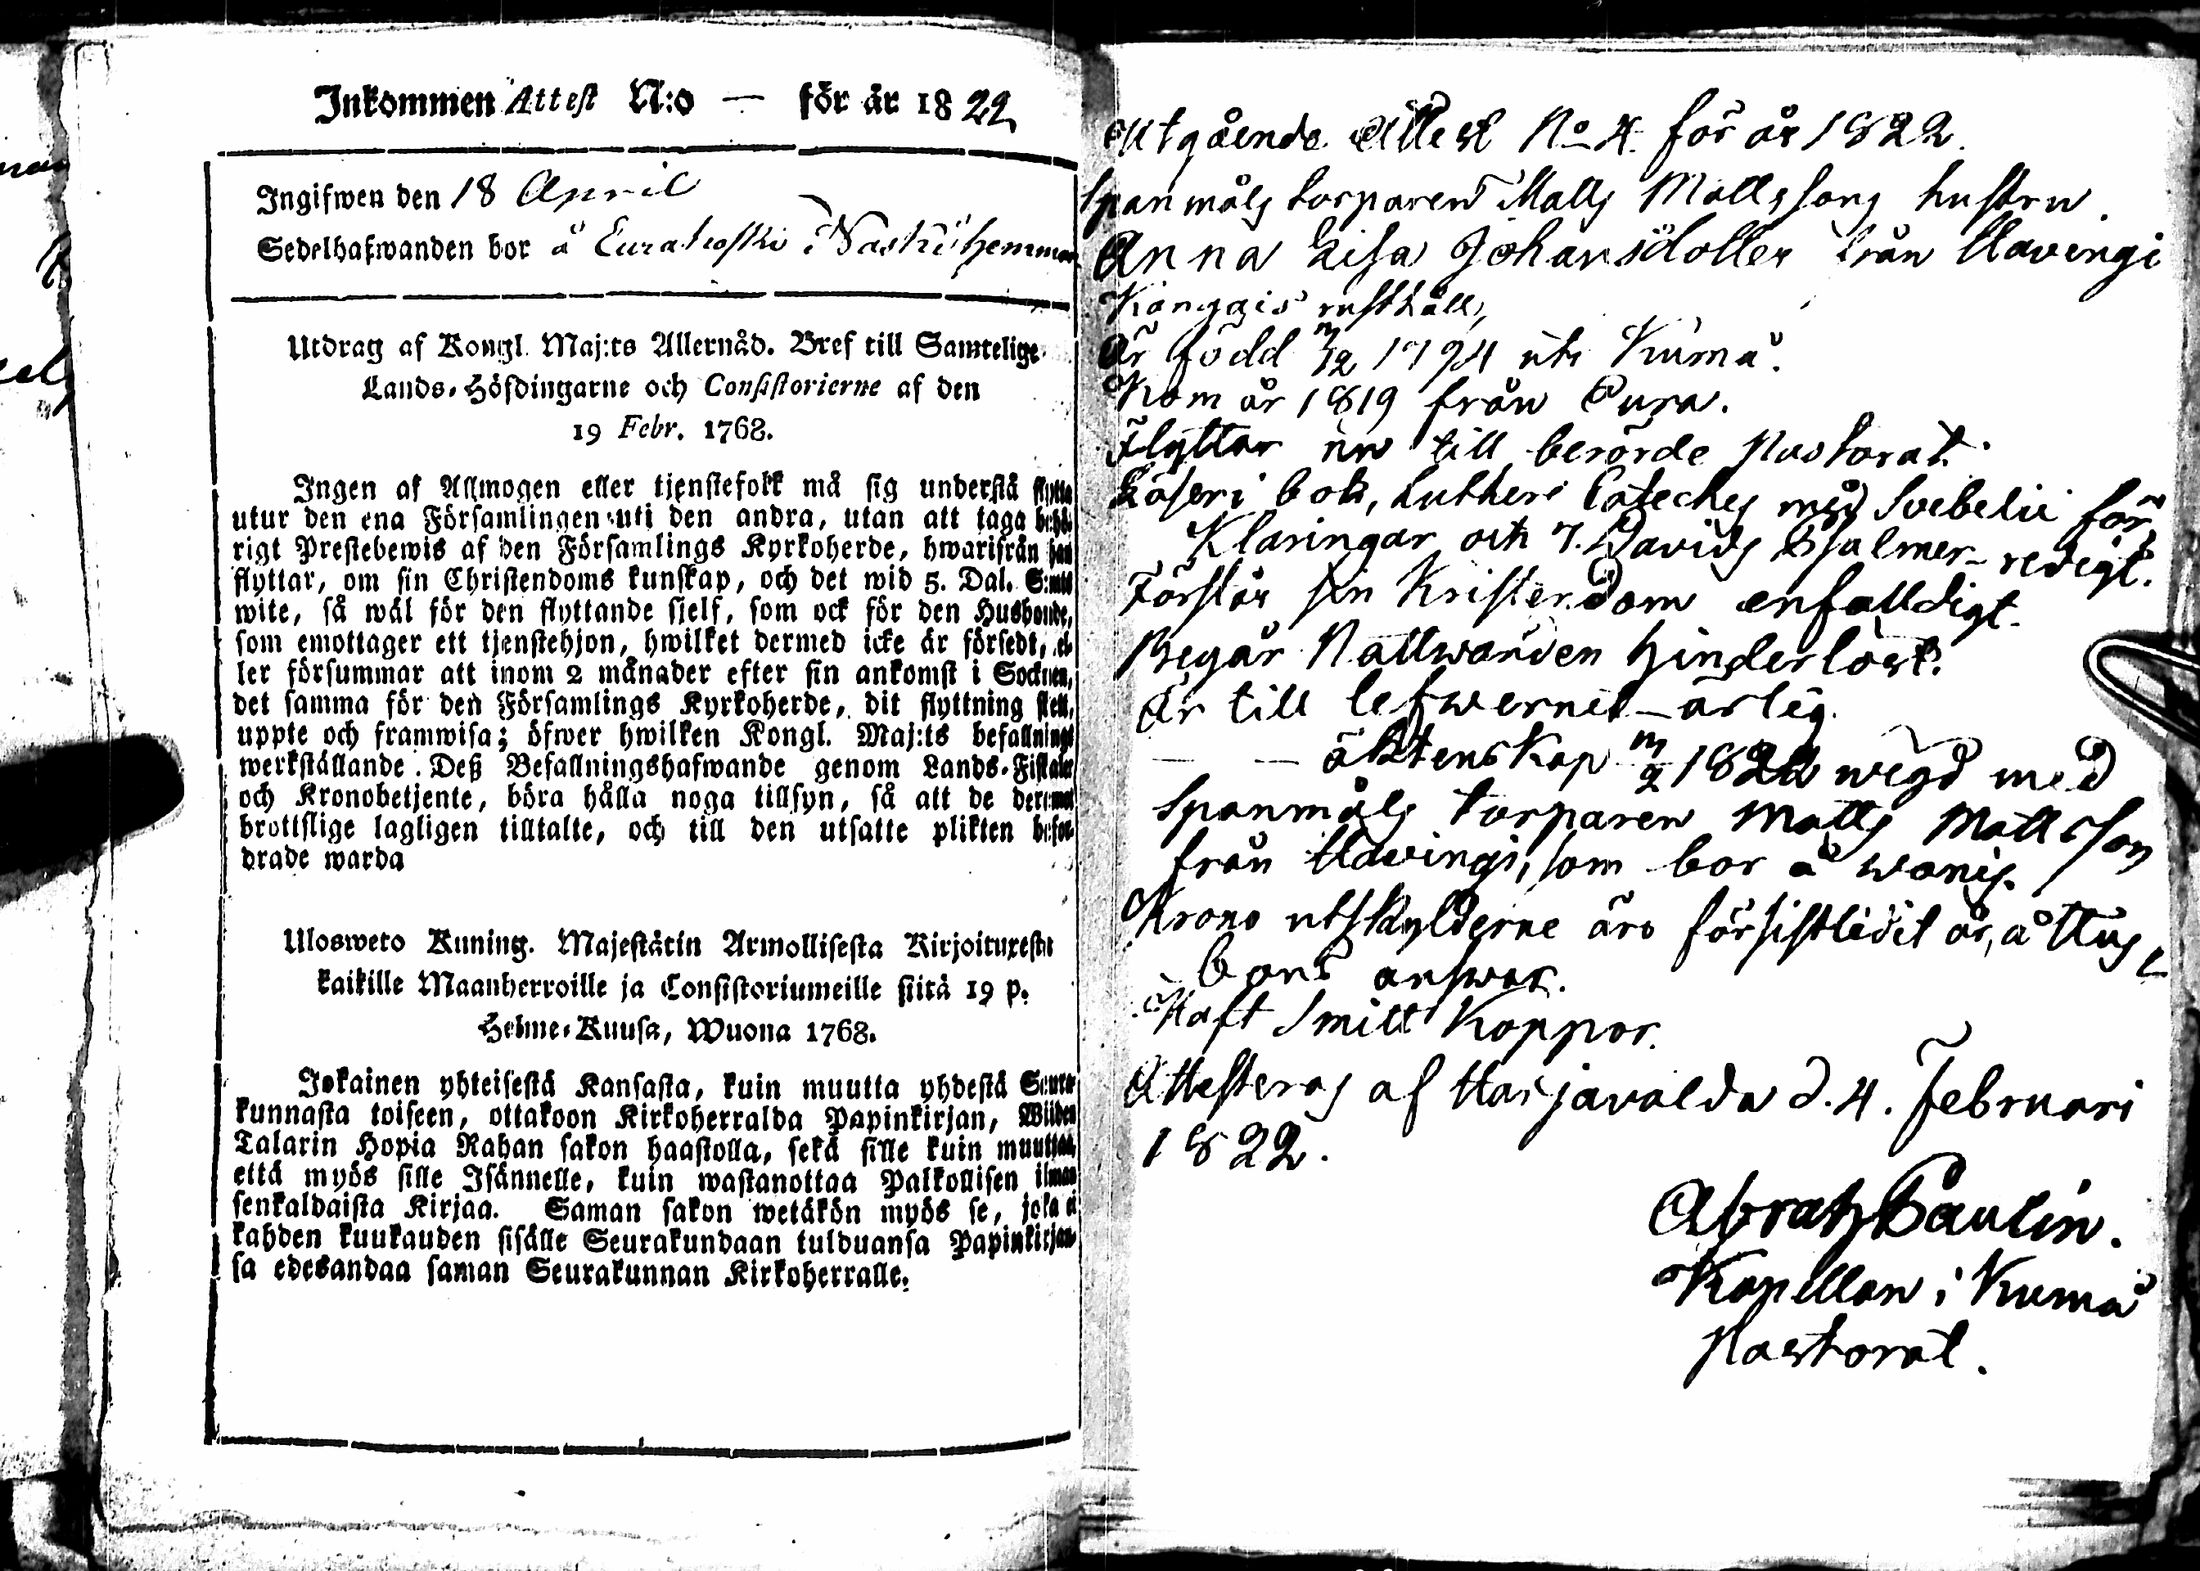 Inkommen Attest N:o — för år 1822
Ingifwen den 18 April
Sedelhafwanden bor å Eurakoski i Naski hemman
Utdrag af Kongl. Maj:ts Allernåd. Bref till Samtelige
Lands-Höfdingarne och Consistorierne af den
19 Febr. 1768.
Ingen af Allmogen eller tjenstefolk må sig understå flytta
utur den ena Församlingen uti den andra, utan att taga behö-
rigt Prestebewis af den Församlings Kyrkoherde, hwarifrån han
flyttar, om sin Christendoms kunskap, och det wid 5. Dal. S:mts
wite, så wäl för den flyttande sjelf, som ock för den Husbonde,
som emottager ett tjenstehjon, hwilket dermed icke är försedt, el-
ler försummar att inom 2 månader efter sin ankomst i Socknen,
det samma för den Församlings Kyrkoherde, dit flyttning skett,
uppte och framwisa; öfwer hwilken Kongl. Maj:ts befallnings
werkställande Deß Befallningshafwande genom Lands-Fiskaler
och Kronobetjente, böra hålla noga tillsyn, så att de deremot
brottslige lagligen tilltalte, och till den utsatte plikten befor-
drade warda
Ulosweto Kuning. Majestätin Armollisesta Kirjoituxesta
kaikille Maanherroille ja Consistoriumeille siitä 19 p.
Helme-Kuusa, Wuona 1768.
Jokainen yhteisestä Kansasta, kuin muutta yhdestä Seura-
kunnasta toiseen, ottakoon Kirkoherralda Papinkirjan, Wiiden
Talarin Hopia Rahan sakon haastolla, sekä sille kuin muuttaa,
että myös sille Isännelle, kuin wastanottaa Palkollisen ilman
senkaldaista Kirjaa. Saman sakon wetäkön myös se, joka ei
kahden kuukauden sisälle Seurakundaan tulduansa Papinkirjan-
sa edesandaa saman Seurakunnan Kirkoherralle.
Utgående Attest No 4. för år 1822.
Spanmåls torparen Matts Mattssons hustru
Anna Lisa Johansdotter från Havingi
Kånggis rusthåll,
Är född 1794 uti Kumå.
Kom år 1819 från Eura.
Flyttar nu till berörde Pastorat.
Läser i bok, Lutheri Cateches med Svebelii för-
Klaringar och 7. Davids Psalmer - redigt.
Förstår sin Kristendom enfalldigt.
Begår Nattwarden hinderlöst.
är till lefwernet - ärlig.
— — äktenskap wigd med
Spanmåls torparen Matts Mattsson
från Havingi, som bor å
Krono utskylderne äro försistledit år, å Hus-
bond answar.
Haft Smitt Koppor.
Attesteras af Harjavalda d. 4. Februari
1822.
Abrah Paulin.
Kapellan i Kumå
Pastorat.